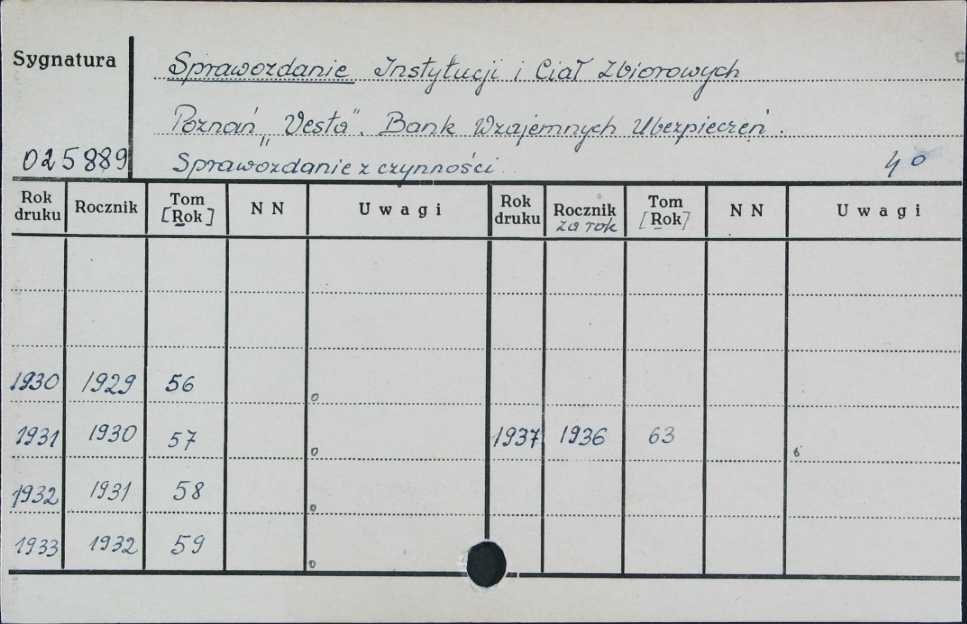 Sygnatura
Sprawozdanie Instytucji i Ciał Zbiorowych
Poznań „Vesta". Bank Wzajemnych Ubezpieczeń.
025889 Sprawozdanie z czynności. 4°
Rok druku Rocznik Tom [Rok] N N Uwagi Rok druku Rocznik za rok Tom [Rok] N N Uwagi
1930 1929 56 o
1931 1930 57 o 1937 1936 63
1932 1931 58 o
1933 1932 59 o